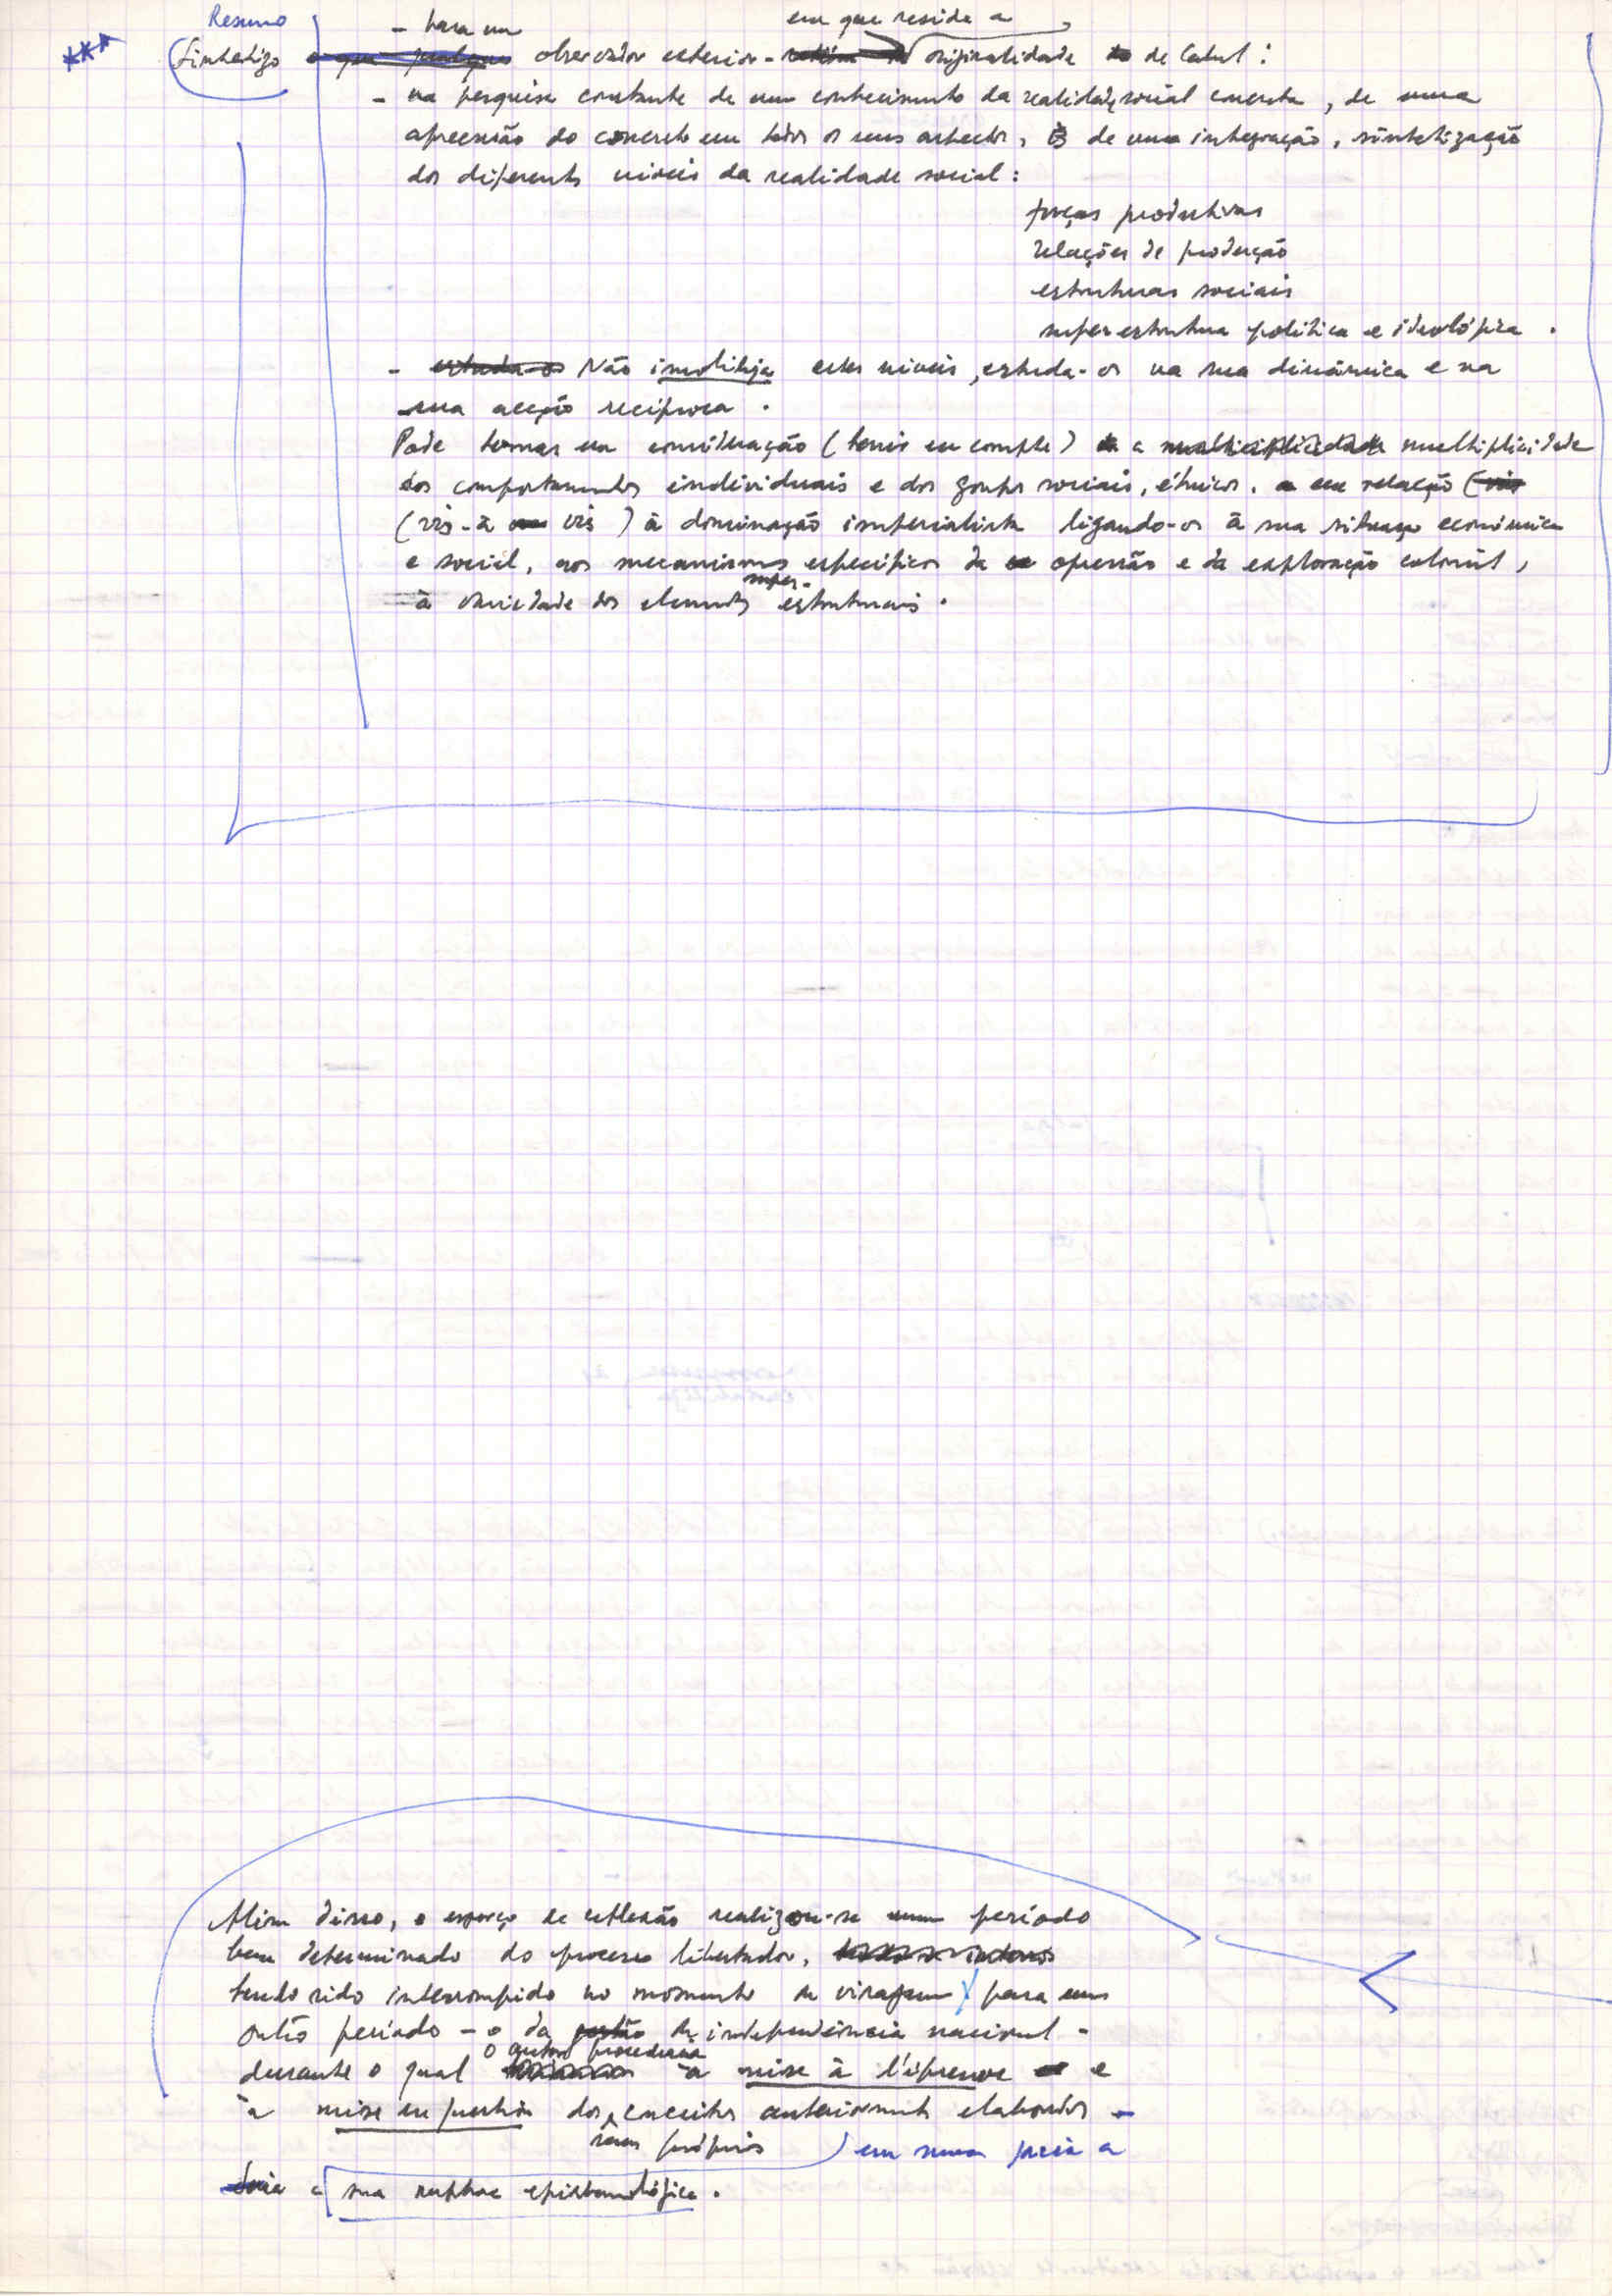 Resumo
- para um
em que reside a
*** Sintetizo o que qualquer observador exterior - originalidade de Cabral :
- na pesquisa constante de um conhecimento da realidade social concreta, de uma
apreensão do concreto em todos os seus aspectos, de uma integração, sintetização
dos diferentes níveis da realidade social :
forças produtivas
relações de produção
estruturas sociais
superestrutura política e ideológica .
- estuda-os Não imobiliza estes níveis, estuda-os na sua dinâmica e na
sua acção recíproca .
Pode tomar em consideração (tenir en compte) a multiplicidade multiplicidade
dos comportamentos individuais e dos grupos sociais, étnicos, em relação (vis
(vis-à vis) à dominação imperialista ligando-os à sua situação económica
e social, aos mecanismos específicos da opressão e da exploração colonial,
super-
à variedade dos elementos estruturais .
Além disso, o esforço de reflexão realizou-se num período
bem determinado do processo libertador,
tendo sido interrompido no momento de viragem para um
outro período - o da gestão da independência nacional -
o autor procederia
durante o qual à mise à l'épreuve e
à mise en question dos conceitos anteriormente elaborados -
seus próprios em suma faria a
faria a sua rupture epistemológica .